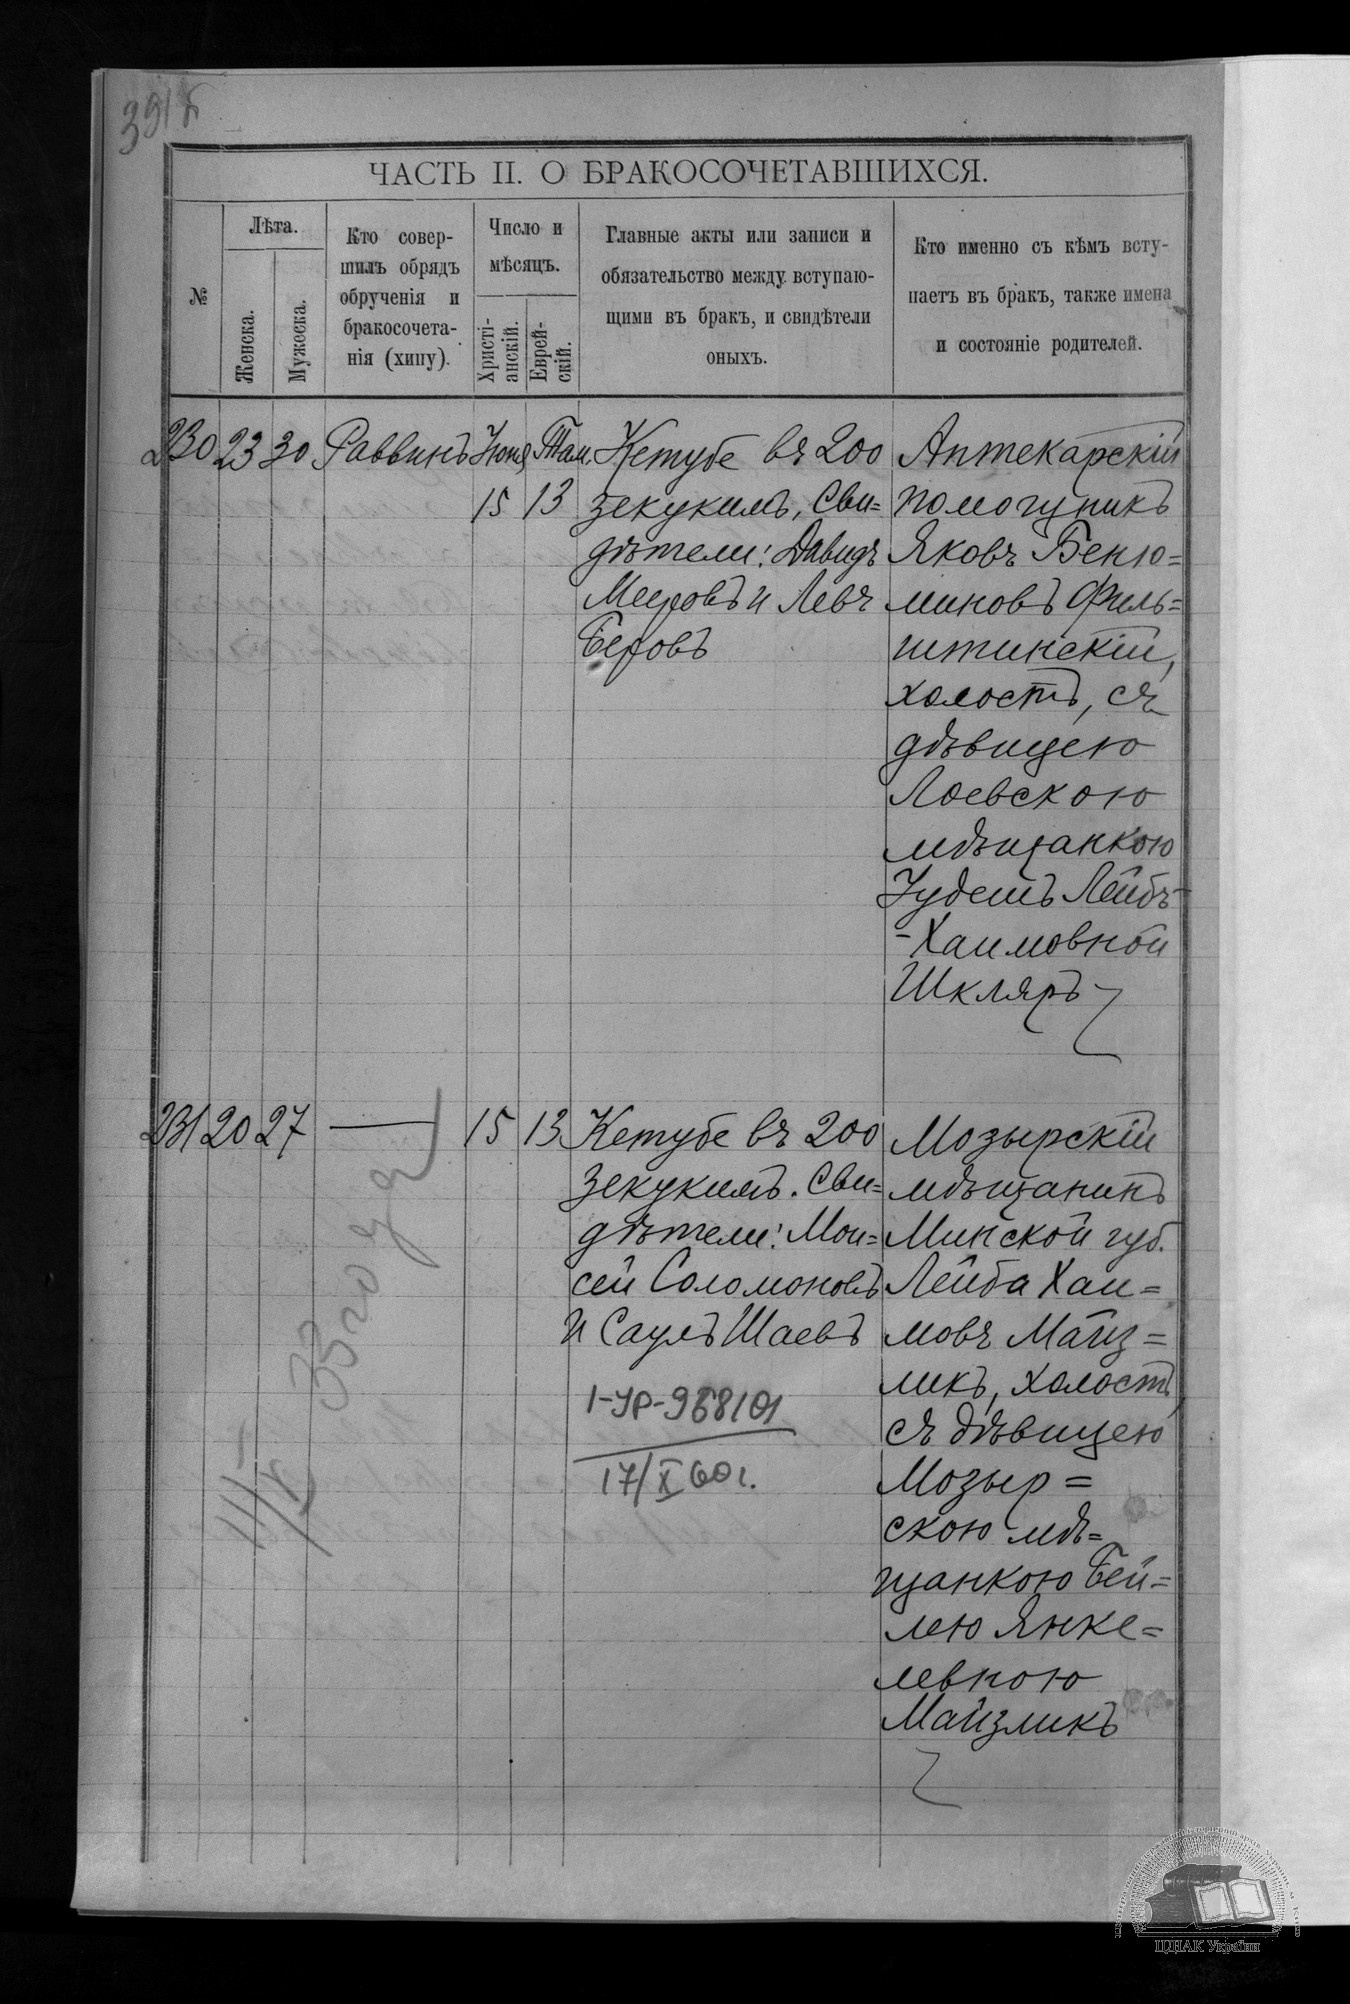 391 б
ЧАСТЬ II. О БРАКОСОЧЕТАВШИХСЯ.
№
Лѣта.
Женска.
Мужеска.
Кто совер-
шилъ обрядъ
обрученія и
бракосочета-
нія (хипу).
Число и
мѣсяцъ.
Христі-
анскій.
Еврей-
скій.
Главные акты или записи и
обязательство между вступаю-
щими въ бракъ, и свидѣтели
оныхъ.
Кто именно съ кѣмъ всту-
паетъ въ бракъ, также имена
и состояніе родителей.
230 23 30 Раввинъ Июня Там.
15 13
Кетубе въ 200
зекукимъ, Сви=
дѣтели: Давидъ
Мееровъ и Левъ
Беровъ
Аптекарскій
помощникъ
Яковъ Беню=
миновъ Филь=
штинскій,
холостъ, съ
дѣвицею
Лоевскою
мѣщанкою
Лейбъ-
-Хаимовной
Шкляръ
231 20 27 — 15 13
Кетубе въ 200
зекукимъ. Сви=
дѣтели: Мои=
сей Соломоновъ
и Саулъ Шаевъ
1-УР-968101
17/X 60 г.
Мозырскій
мѣщанинъ
Минской губ.
Лейба Хаи=
мовъ Майз=
ликъ, холостъ,
съ дѣвицею
Мозыр=
скою мѣ=
щанкою Бей=
лею Янке=
левною
Майзликъ
33 года
ЦДІАК України